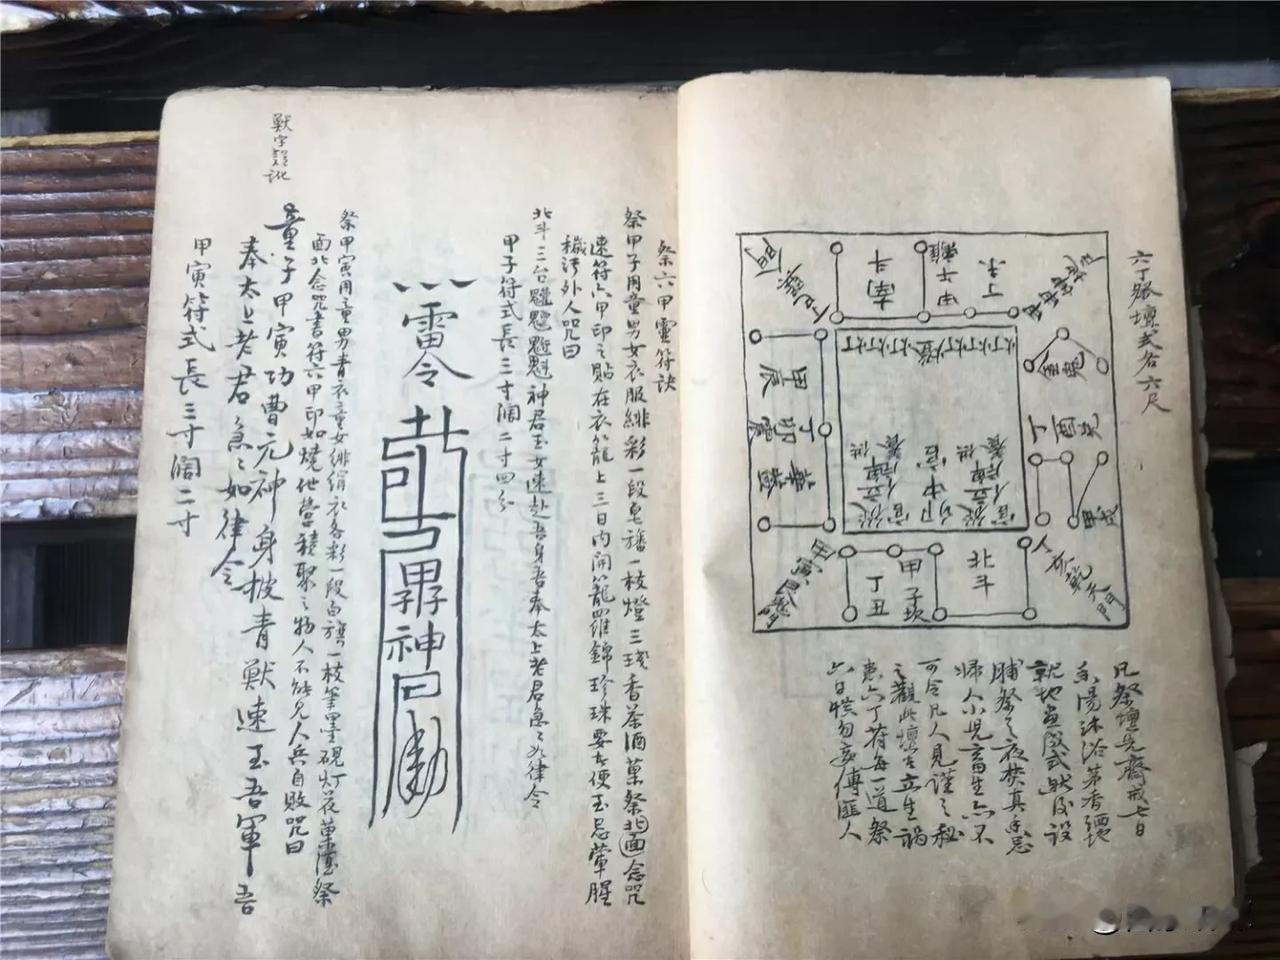 六丁祭壇式各六尺
南斗
甲午離
丁未
甲辰
丁卯震
丁酉兌
甲戌
丁丑
甲子坎
北斗
灯灯灯燈灯灯灯
凡祭壇先齋戒七日
香湯沐浴茅香
就地畫成式然後設
脯祭之夜焚真香忌
婦人小兒畜生亦不
可令凡人見謹之秘
之觀此壇者立生禍
患六丁符每一道祭
六日慎勿妄傳匪人
祭六甲靈符訣
祭甲子用童男女衣服緋彩一段皂旛一枝燈三琖香茶酒菓祭北面念咒
速符六甲印之貼在衣籠上三日內開籠羅錦珍珠要者便至忌葷腥
穢污外人咒曰
北斗三台神君玉女速赴吾身吾奉太上老君急急如律令
甲子符式長三寸闊二寸四分
雷令
神
祭甲寅用童男青衣童女緋絹衣各彩一段白旗一枝筆墨硯灯花菓燈祭
面北念咒書符六甲印如燒他營積聚之物人不能見人兵自敗咒曰
童子甲寅功曹元神身披青獸速至吾軍吾
奉太上老君急急如律令
甲寅符式長三寸闊二寸
獸字疑訛